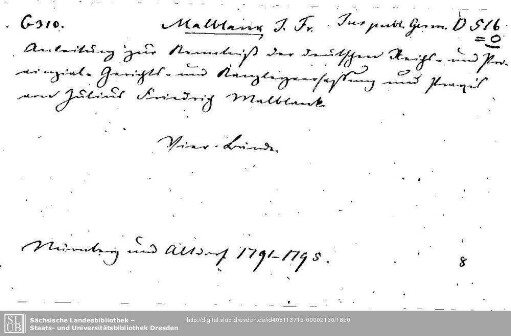 G 310. Malblank J. Fr. Jus publ. Germ. D 516
= 0
Anleitung zur Kenntniß der deutschen Reichs- und Pro-
vinzial-Gerichts- und Kanzleyverfassung und Praxis
von Julius Friedrich Malblank
Vier Bände.
Nürnberg und Altdorf 1791-1795.
8
Sächsische Landesbibliothek –
Staats- und Universitätsbibliothek Dresden